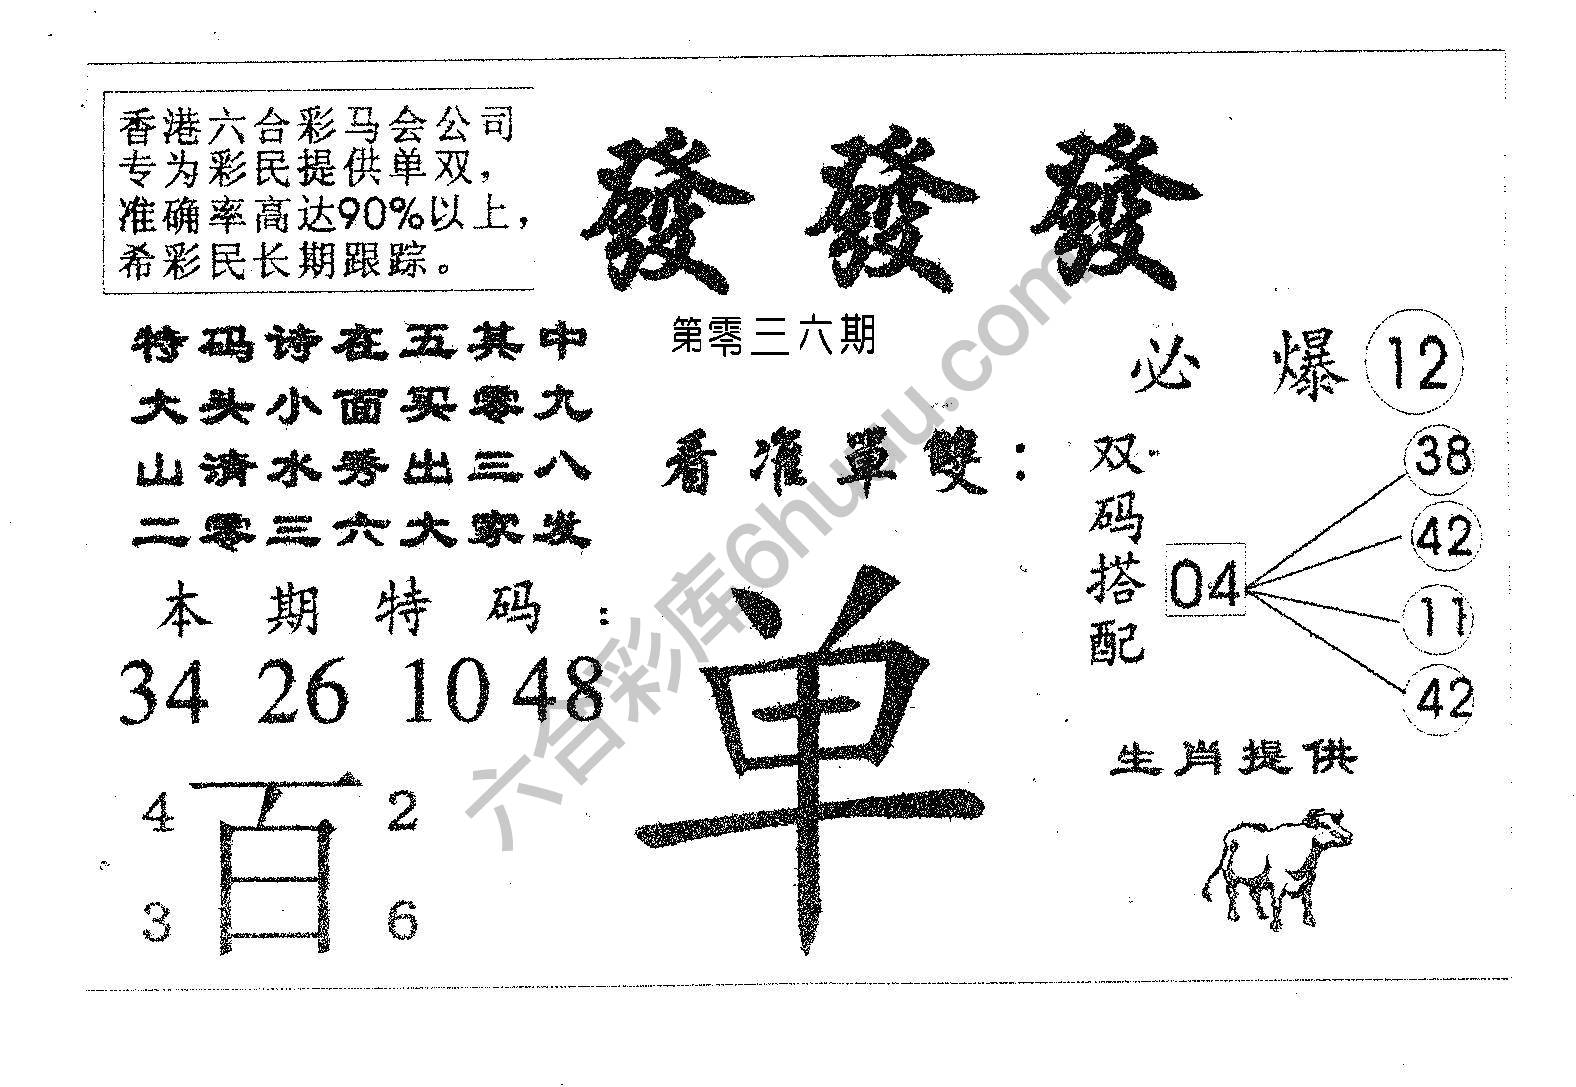 香港六合彩马会公司
专为彩民提供单双，
准确率高达90%以上，
希彩民长期跟踪。
發 發 發
第零三六期
特码诗在五其中
大头小面买零九
山清水秀出三八
二零三六大家发
本期特码：
34 26 10 48
百
4 2
3 6
看准單雙：
单
必爆 12
双码搭配
04
38
42
11
42
生肖提供
六合彩库6huuu.com